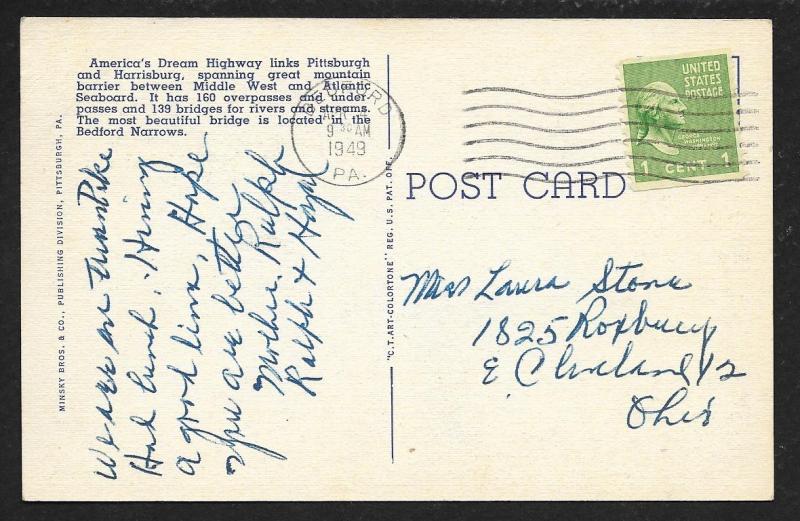 America's Dream Highway links Pittsburgh
and Harrisburg, spanning great mountain
barrier between Middle West and Atlantic
Seaboard. It has 160 overpasses and under-
passes and 139 bridges for rivers and streams.
The most beautiful bridge is located in the
Bedford Narrows.
MINSKY BROS. & CO., PUBLISHING DIVISION, PITTSBURGH, PA.
We are on Turnpike
Had lunch. Having
a good time, Hope
you are better
Mother, Ralph
Ralph +
BEDFORD
9 30 AM
1949
PA.
"C.T. ART-COLORTONE" REG. U.S. PAT. OFF.
POST CARD
UNITED
STATES
POSTAGE
GEORGE
WASHINGTON
1 CENT 1
Miss Laura Stone
1825 Roxbury
E Cleveland 12
Ohio